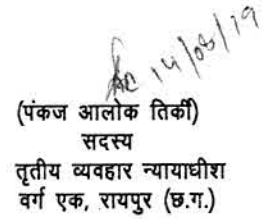 14/08/19
(पंकज आलोक तिर्की)
सदस्य
तृतीय व्यवहार न्यायाधीश
वर्ग एक, रायपुर (छ.ग.)